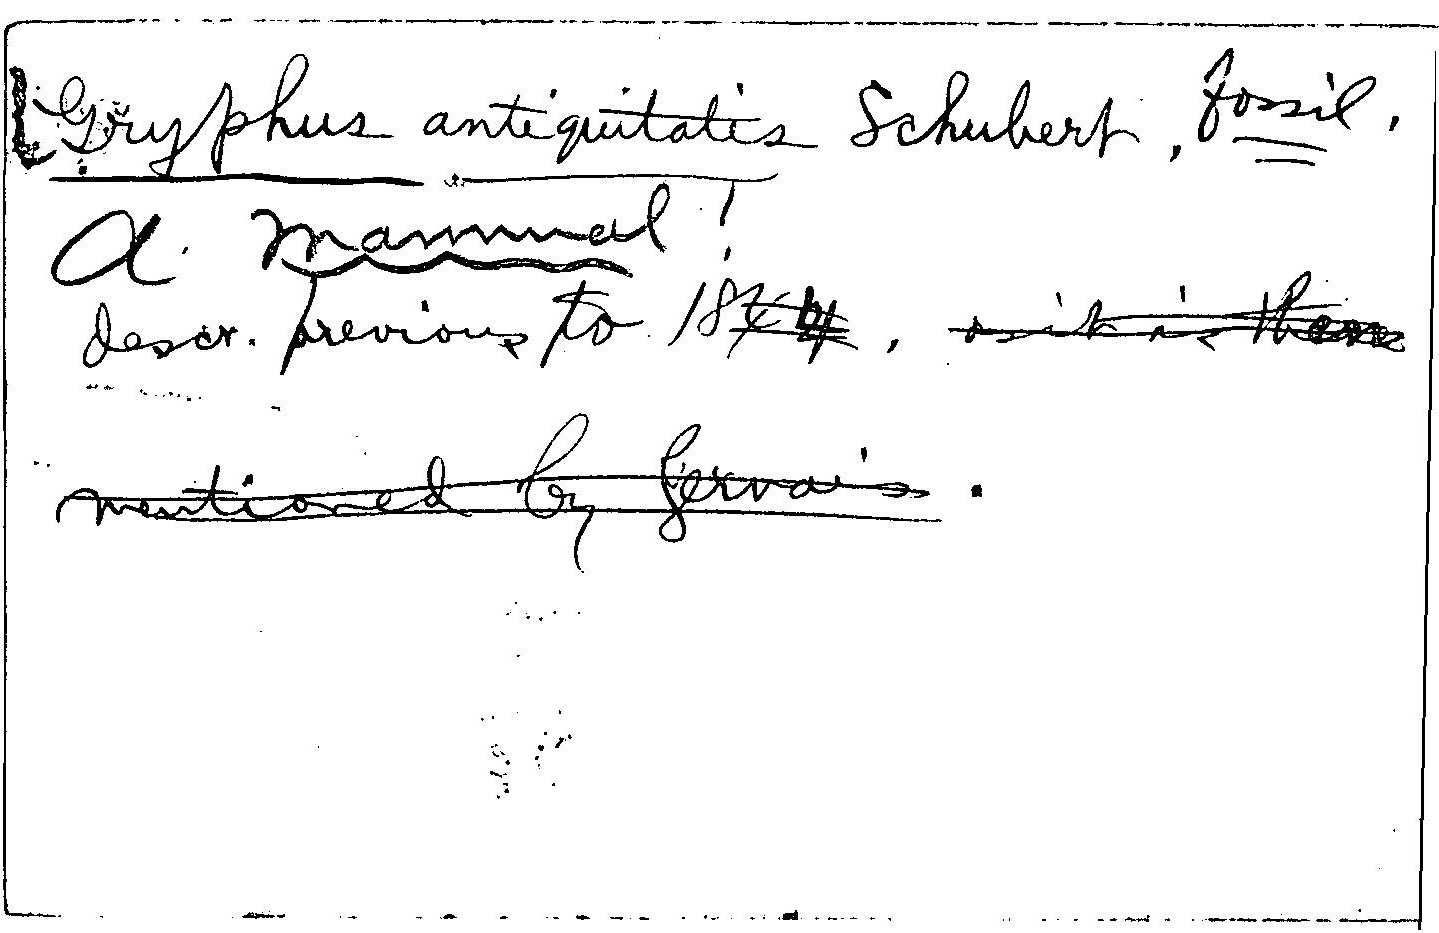 [Gryphus antiquitatis Schubert, Fossil,
a mammal!
descr. previous to 1844, as it is then
mentioned by Gervais.